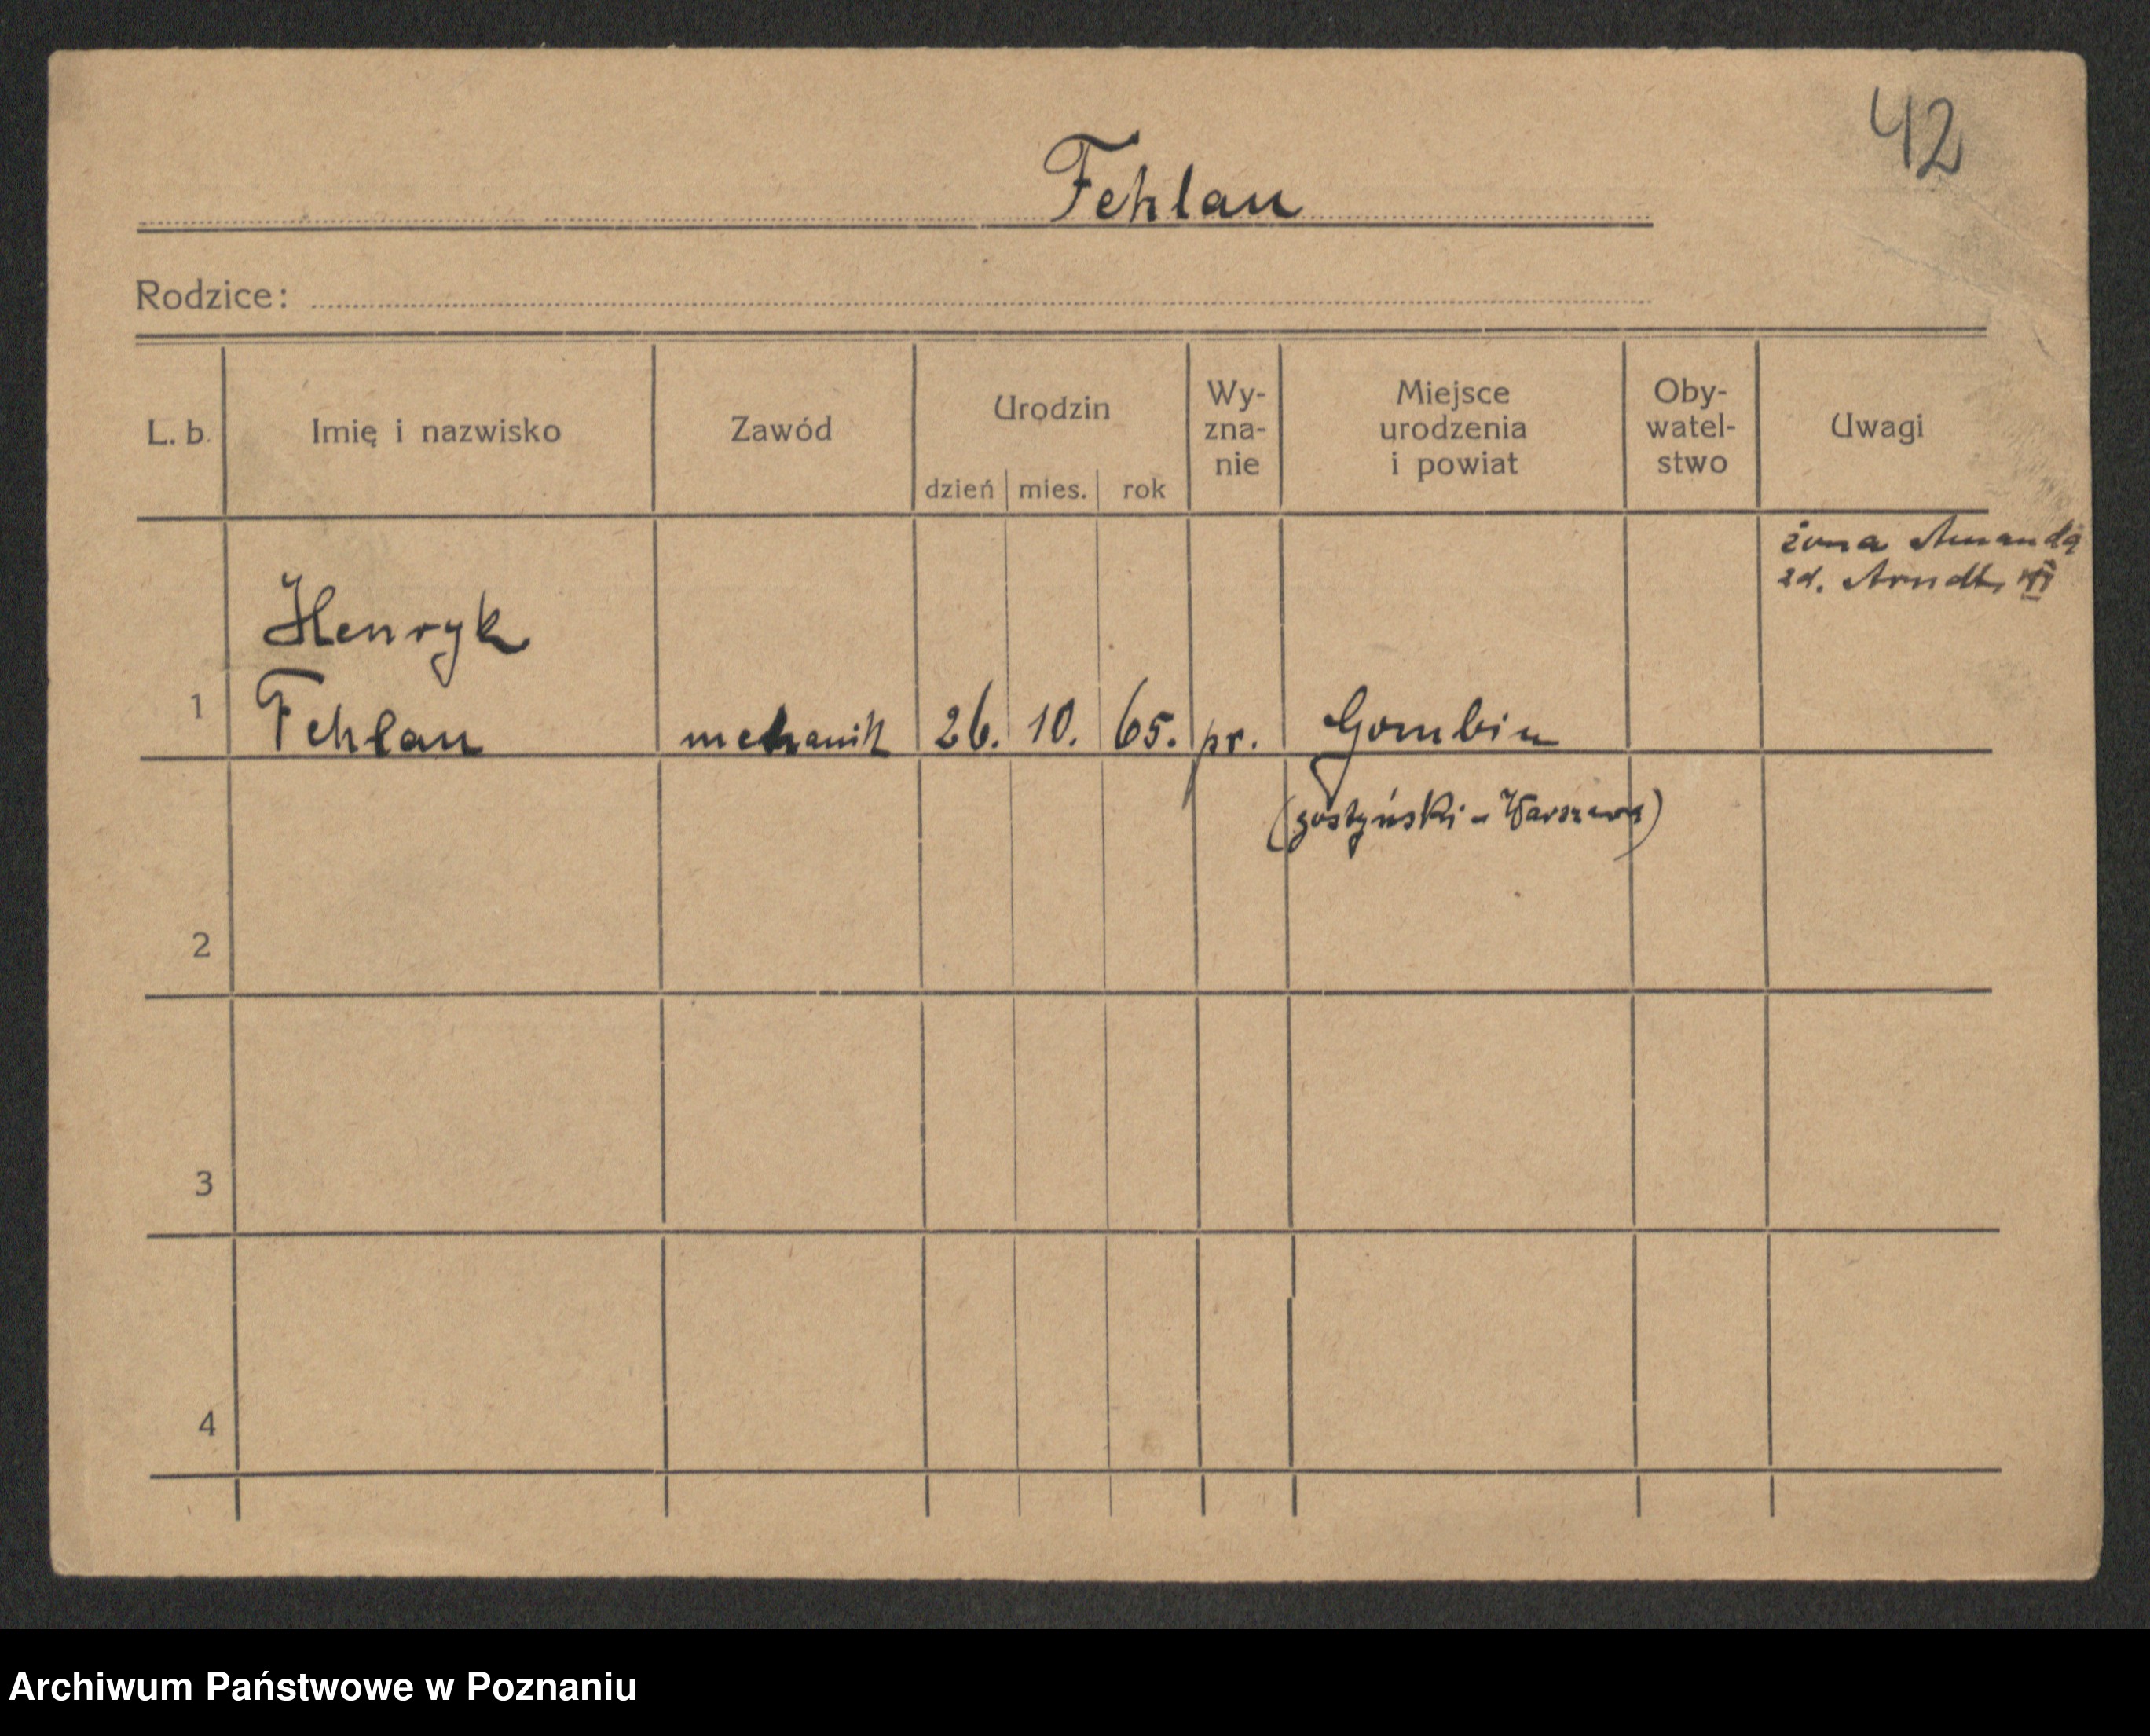 42
Fehlau
Rodzice:
L. b.
Imię i nazwisko
Zawód
Urodzin
dzień
mies.
rok
Wy-
zna-
nie
Miejsce
urodzenia
i powiat
Oby-
watel-
stwo
Uwagi
żona Amanda
zd. Arndt,
Henryk
1 Fehlau mechanik 26. 10. 65. pr. Gombin
(gostyński - Warszawa)
2
3
4
Archiwum Państwowe w Poznaniu